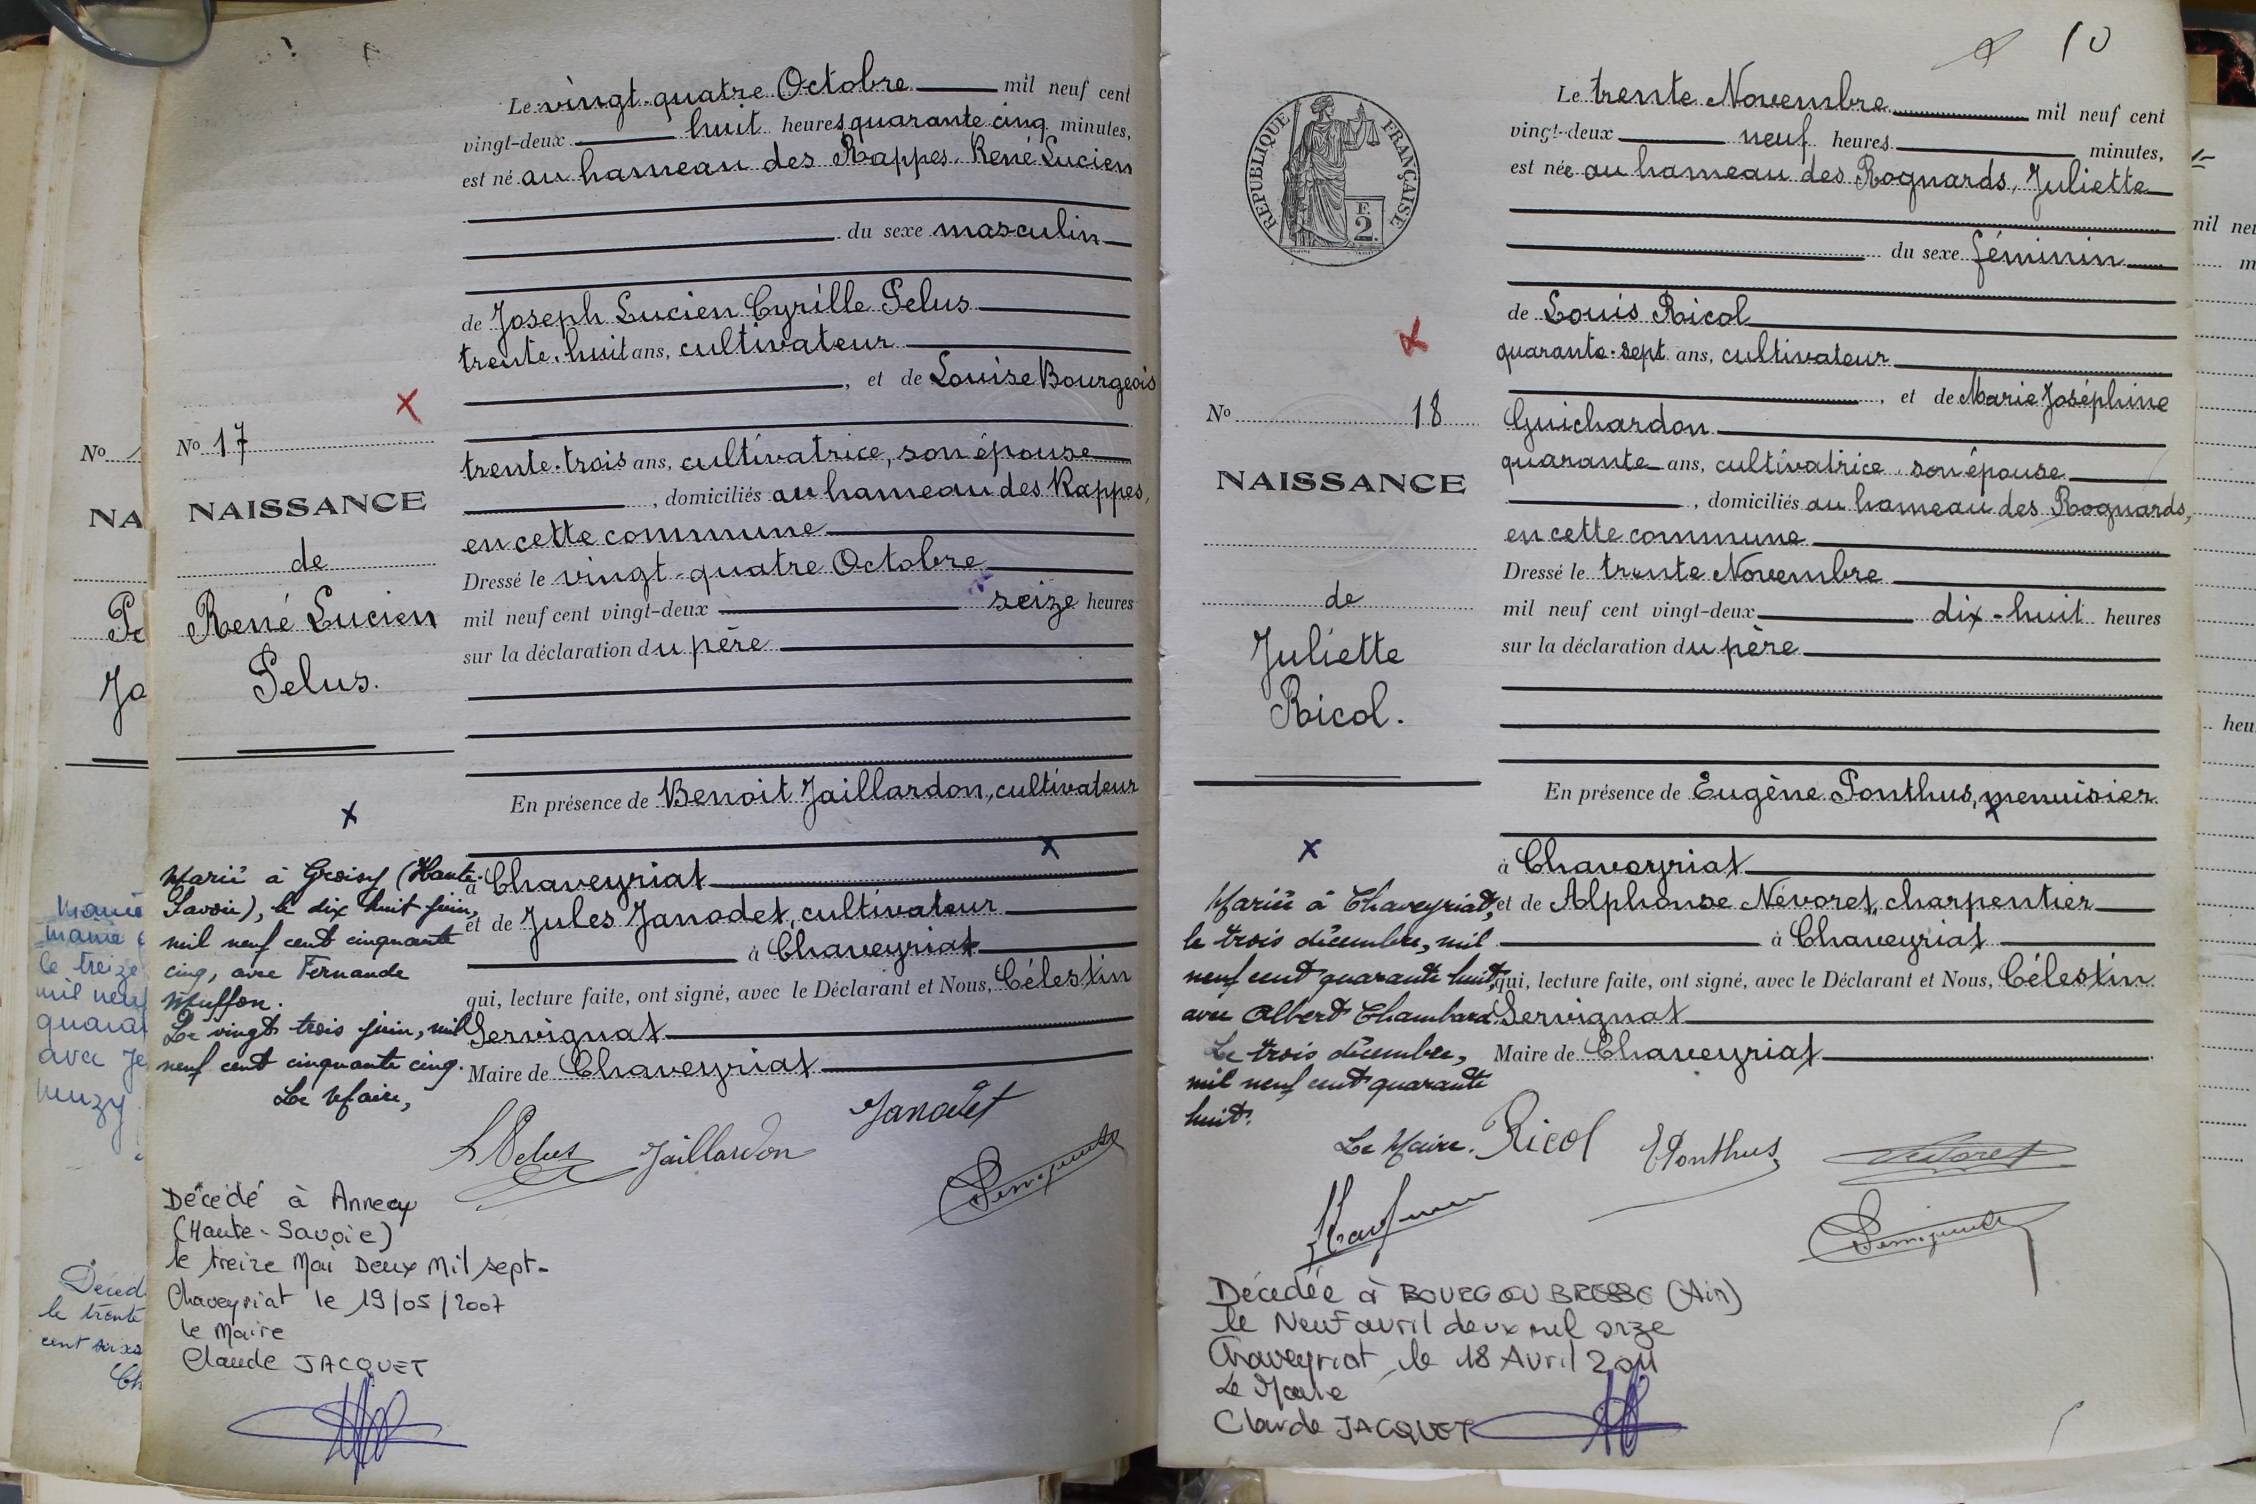 Le vingt-quatre Octobre mil neuf cent
vingt-deux huit heures quarante cinq minutes,
est né au hameau des Rappes, René Lucien
du sexe masculin
de Joseph Lucien Cyrille Pelus
trente-huit ans, cultivateur
, et de Louise Bourgeois
trente-trois ans, cultivatrice, son épouse
, domiciliés au hameau des Rappes,
en cette commune
Dressé le vingt-quatre Octobre
mil neuf cent vingt-deux seize heures
sur la déclaration du père
En présence de Benoit Jaillardon, cultivateur
à Chaveyriat
et de Jules Janodet, cultivateur
à Chaveyriat
qui, lecture faite, ont signé, avec le Déclarant et Nous, Célestin
Servignat
Maire de Chaveyriat
L Pelus Jaillardon Janodet
No 17
NAISSANCE
de
René Lucien
Pelus.
Marié à Groisy (Haute-
Savoie), le dix huit juin,
mil neuf cent cinquante
cinq, avec Fernande
Muffon.
Le vingt trois juin, mil
neuf cent cinquante cinq.
Le Maire,
Décédé à Annecy
(Haute-Savoie)
le treize Mai Deux Mil sept-
Chaveyriat le 19/05/2007
le Maire
Claude JACQUET
No
NA
Pe
Jo
le treize
mil neuf
quaran
avec Je
Décéd
le trente
cent soixa
Ch
10
RÉPUBLIQUE FRANÇAISE
F.
2.
Le trente Novembre mil neuf cent
vingt-deux neuf heures minutes,
est née au hameau des Rognards, Juliette
du sexe féminin
de Louis Ricol
quarante-sept ans, cultivateur
, et de Marie Joséphine
Guichardon
quarante ans, cultivatrice, son épouse
, domiciliés au hameau des Rognards,
en cette commune
Dressé le trente Novembre
mil neuf cent vingt-deux dix-huit heures
sur la déclaration du père
En présence de Eugène Ponthus, menuisier
à Chaveyriat
et de Alphonse Névoret, charpentier
à Chaveyriat
qui, lecture faite, ont signé, avec le Déclarant et Nous, Célestin
Servignat
Maire de Chaveyriat
Ricol EPonthus Névoret
No 18
NAISSANCE
de
Juliette
Ricol.
Mariée à Chaveyriat,
le trois décembre, mil
neuf cent quarante huit,
avec Albert Chambard
Le trois décembre,
mil neuf cent quarante
huit.
Le Maire.
Décédée à BOURG EN BRESSE (Ain)
le Neuf avril deux mil onze
Chaveyriat le 18 Avril 2011
Le Maire
Claude JACQUET
mil neu
m
heu